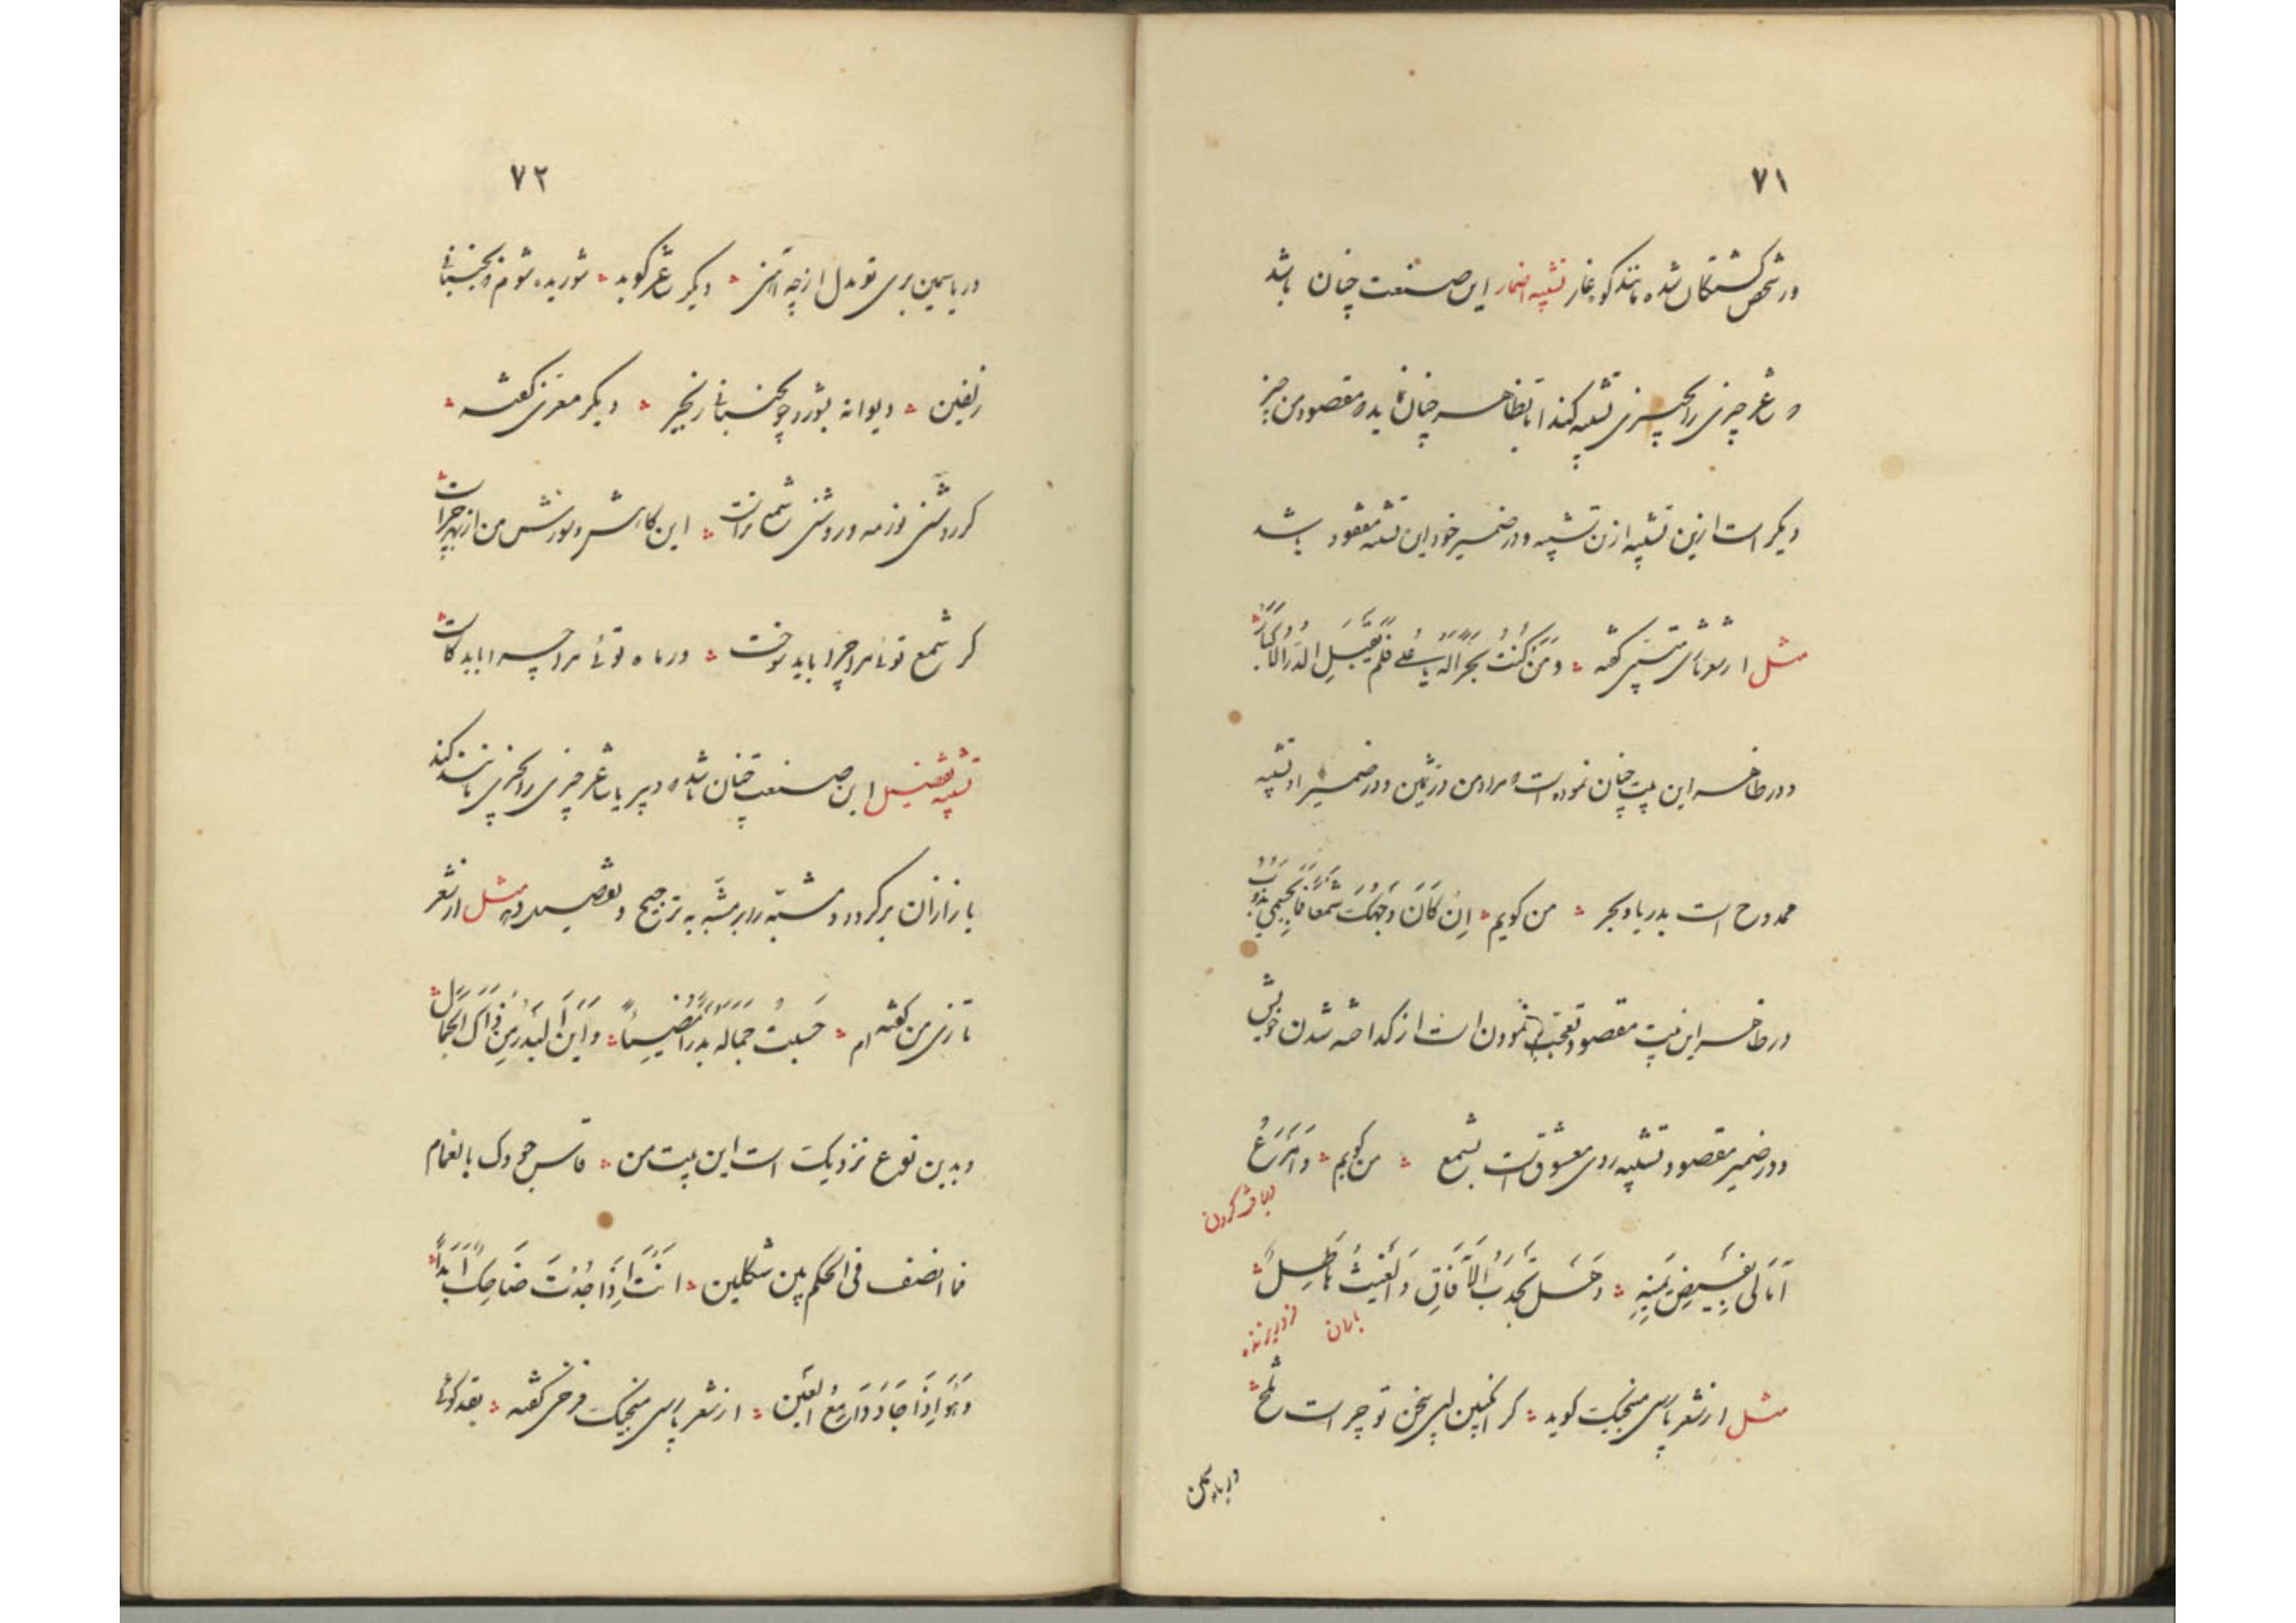 ۷۱
در شخص کشتکان شده مانند کوه غار تشبیه اضمار این صنعت چنان باشد
که شاعر چیزی را بچیزی تشبیه کند اما بظاهر چنان نماید که مقصود من چیز
دیگر است ازین تشبیه نه این تشبیه و در ضمیر خود این تشبیه مقصود باشد
مثل از شعر تازی متنبی گفته وَمَنْ كُنْتَ بَحْرًا لَهُ يَا عَلِيُّ فَلَمْ يَقْبَلِ الدُّرَّ إِلَّا كِبَارًا
و در ظاهر این بیت چنان نموده است که مراد من در ثمین و در ضمیر او تشبیه
ممدوح است بدریا و بحر من کویم اِنْ كَانَ وَجْهُكَ شَمْعًا فَمَا لِجِسْمِي يَذُوبُ
در ظاهر این بیت مقصود تعجب نمودن است از کداخته شدن خویش
و در ضمیر مقصود تشبیه روی معشوق است بشمع من کویم
دریا کردن
وَهَلْ تَجْدُبُ الْآفَاقِ وَالْغَيْثُ هَاطِلُ
باران فرو ریزنده
مثل از شعر پارسی منجیک کوید کر انکبین لبی سخن تو چراست تلخ
ور یاسمین
۷۲
ور یاسمین بری تو بدل از چه آهنی دیکر شاعر کوید شوریده شوم چو بجنبانی
زلفین دیوانه بشورد چو بجنبانی زنجیر دیکر معزی گفته
کر روشنی نور مه و روشنی شمع تراست این کاهش و سوزش من از بهر چراست
کر شمع توئی مرا چرا باید سوخت ور ماه توئی مرا چرا باید کاست
تشبیه تفضیل این صنعت چنان باشد که دبیر یا شاعر چیزی را بچیزی مانند کند
باز از آن برکردد و مشبّه را بر مشبّه به ترجیح و تفضیل دهد مثل از شعر
تازی من گفته ام حَسِبْتُ جَمَالَهُ بَدْرًا مُضِيئًا وَأَيْنَ الْبَدْرُ مِنْ ذَاكَ الْجَمَالِ
و بدین نوع نزدیکست این بیت من من قاس جدواک بالغمام
فما انصف فی الحکم بین شکلین انت اِذَا جُدْتَ ضَاحِكٌ اَبَدًا
وَهُوَ اِذَا جَادَ دَامِعُ الْعَيْنِ از شعر پارسی منجیک و فرخی گفته بقد کوئی